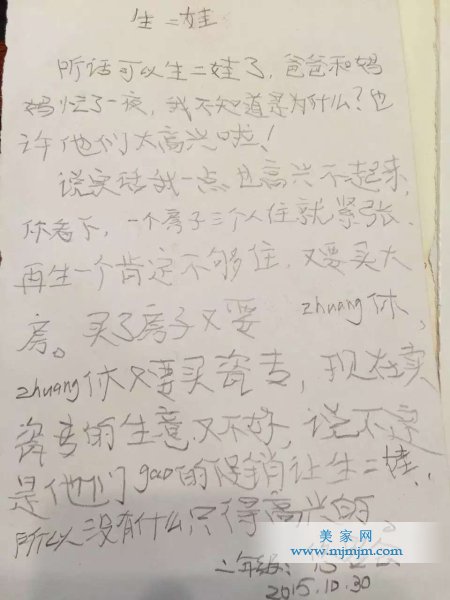 生二娃
听话可以生二娃了,爸爸和妈
妈忙了一夜,我不知道是为什么?也
许他们太高兴啦!
说实话我一点也高兴不起来,
你看下,一个房子三个人住就紧张.
再生一个肯定不够住.又要买大
房。买了房子又要 zhuang休,
zhuang休又要买瓷专,现在卖
瓷专的生意又不好,说不定
是他们gao的促销让生二娃,
所以没有什么只得高兴的。
二年级:
2015.10.30
美家网
www.mjmjm.com